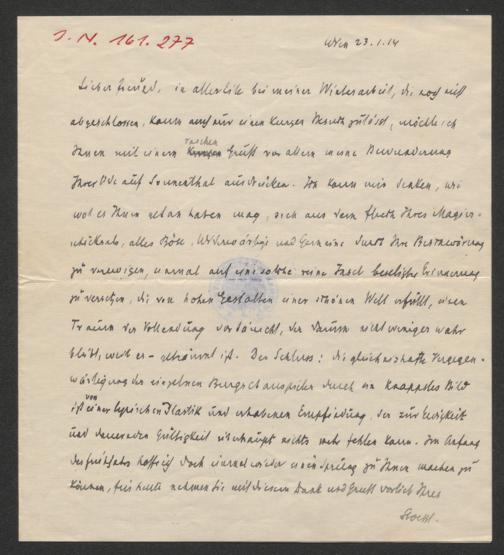 J. N. 161.277
Wien 23.1.14
Lieber Freund, in aller Eile bei meiner Winterarbeit, die noch nicht
abgeschlossen, kaum auch nur einen kurzen zulässt, möchte ich
Ihnen mit einem raschen Gruß vor allem meine Bewunderung
Ihrer Ode auf Sonnenthal ausdrücken. Ich kann mir denken, wie
wohl es Ihnen getan haben mag, sich aus dem Ihres
alles Böse, Widerwärtige und Gemeine durch Ihre Beschwörung
zu verewigen, einmal auf eine solche reine Insel seelischer Erinnerung
zu versetzen, die von hohen Gestalten einer schönen Welt erfüllt, einen
Traum der Vollendung der darum nicht weniger wahr
bleibt, weil er – geträumt ist. Der Schluss: die gleichnishafte Vergegen-
wärtigung der einzelnen Burgschauspieler durch ein knappstes Bild
ist von einer lyrischen Plastik und erhabenen Empfindung, der zur Ewigkeit
und dauernden Gültigkeit überhaupt nichts mehr fehlen kann. Im Anfang
des Frühjahrs hoffe ich doch einmal wieder einen Sprung zu Ihnen machen zu
können, für heute nehmen Sie mit diesem Dank und Gruß vorlieb Ihres
Stoessl.